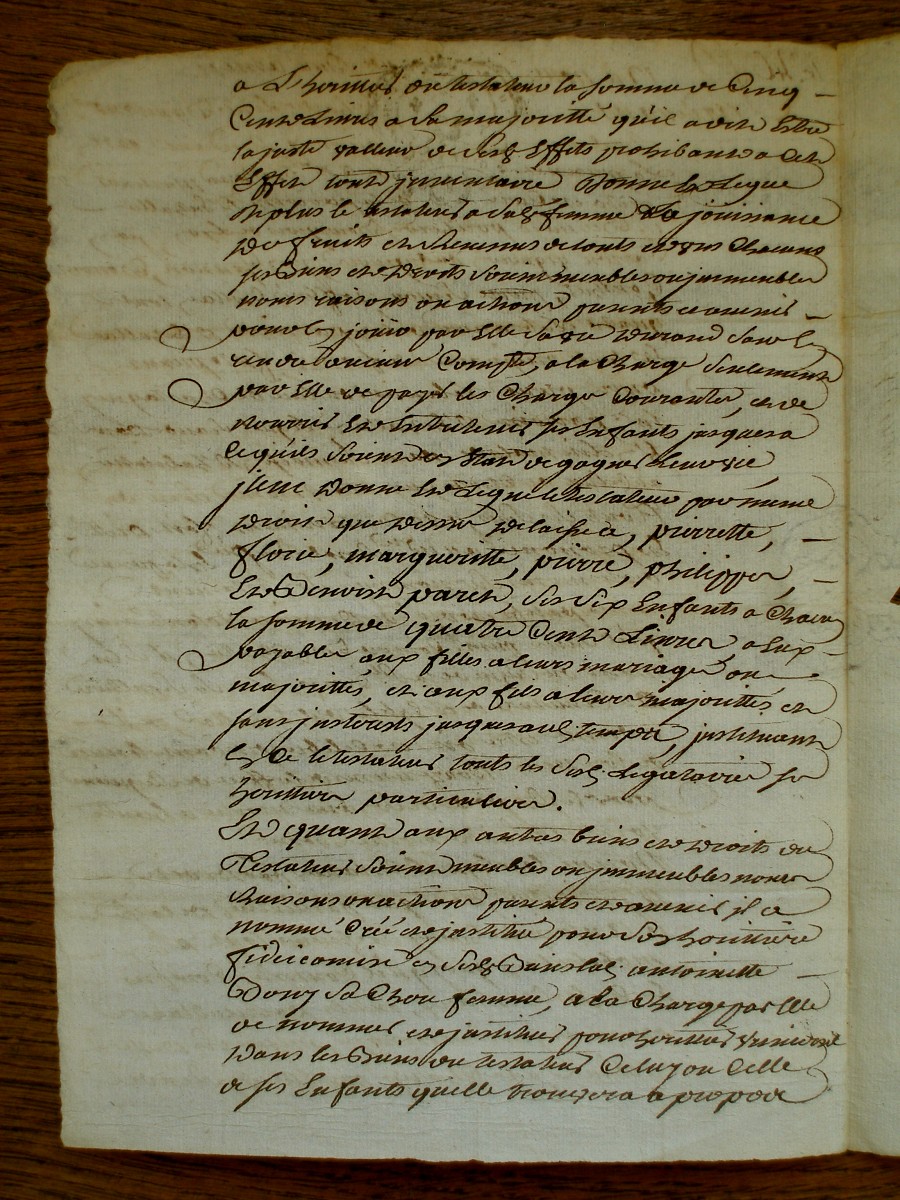 a L'heritier du testateur la somme de Cinq
Cents Livres a sa majoritté qu'il a dit Estre
la juste valleur de ses Effets prohibant a Cet
Effet tout jnventaire Donne & Legue
de plus le testateur a sad. femme La jouissance
des fruits et Revenus de touts et uns Chacuns
ses Biens et Droits soient meubles ou jmmeubles
noms raisons ou actions presents et avenir
pour en jouir par Elle sa vie durand sans en
rendre aucun Compte, a la Charge seulement
par Elle de payer les Charges Courantes, et de
nourrir et Entretenir ses Enfants jusques a
Ce qu'ils soient En Etat de gagner Leur vie
jtem Donne Et Legue le testateur par meme
droit que dessus pierrette,
florie, margueritte, pierre, philippe,
Et Benoist paret, ses six Enfants a Chacun
la somme de quatre Cents Livres, a Eux
payable aux filles a leurs mariages ou
majorittés, et aux fils a leurs majorittés et
sans jnterests jusques aud. temps, jnstituant
En Ce le testateur touts les sesd. Legataires ses
heritiers particuliers.
Et quant aux autres biens et droits du
Testateur soient meubles ou jmmeubles noms
Raisons ou actions presents et avenir jl a
nommé Créé et jnstitué pour son heritiere
fideicomise En sesd. Biens lad. antoinette
Dony sa Chere femme, a la Charge par Elle
de nommer et jnstituer pour heritier universel
Dans les Biens du testateur Celuy ou Celle
de ses Enfants qu'elle trouvera a propos